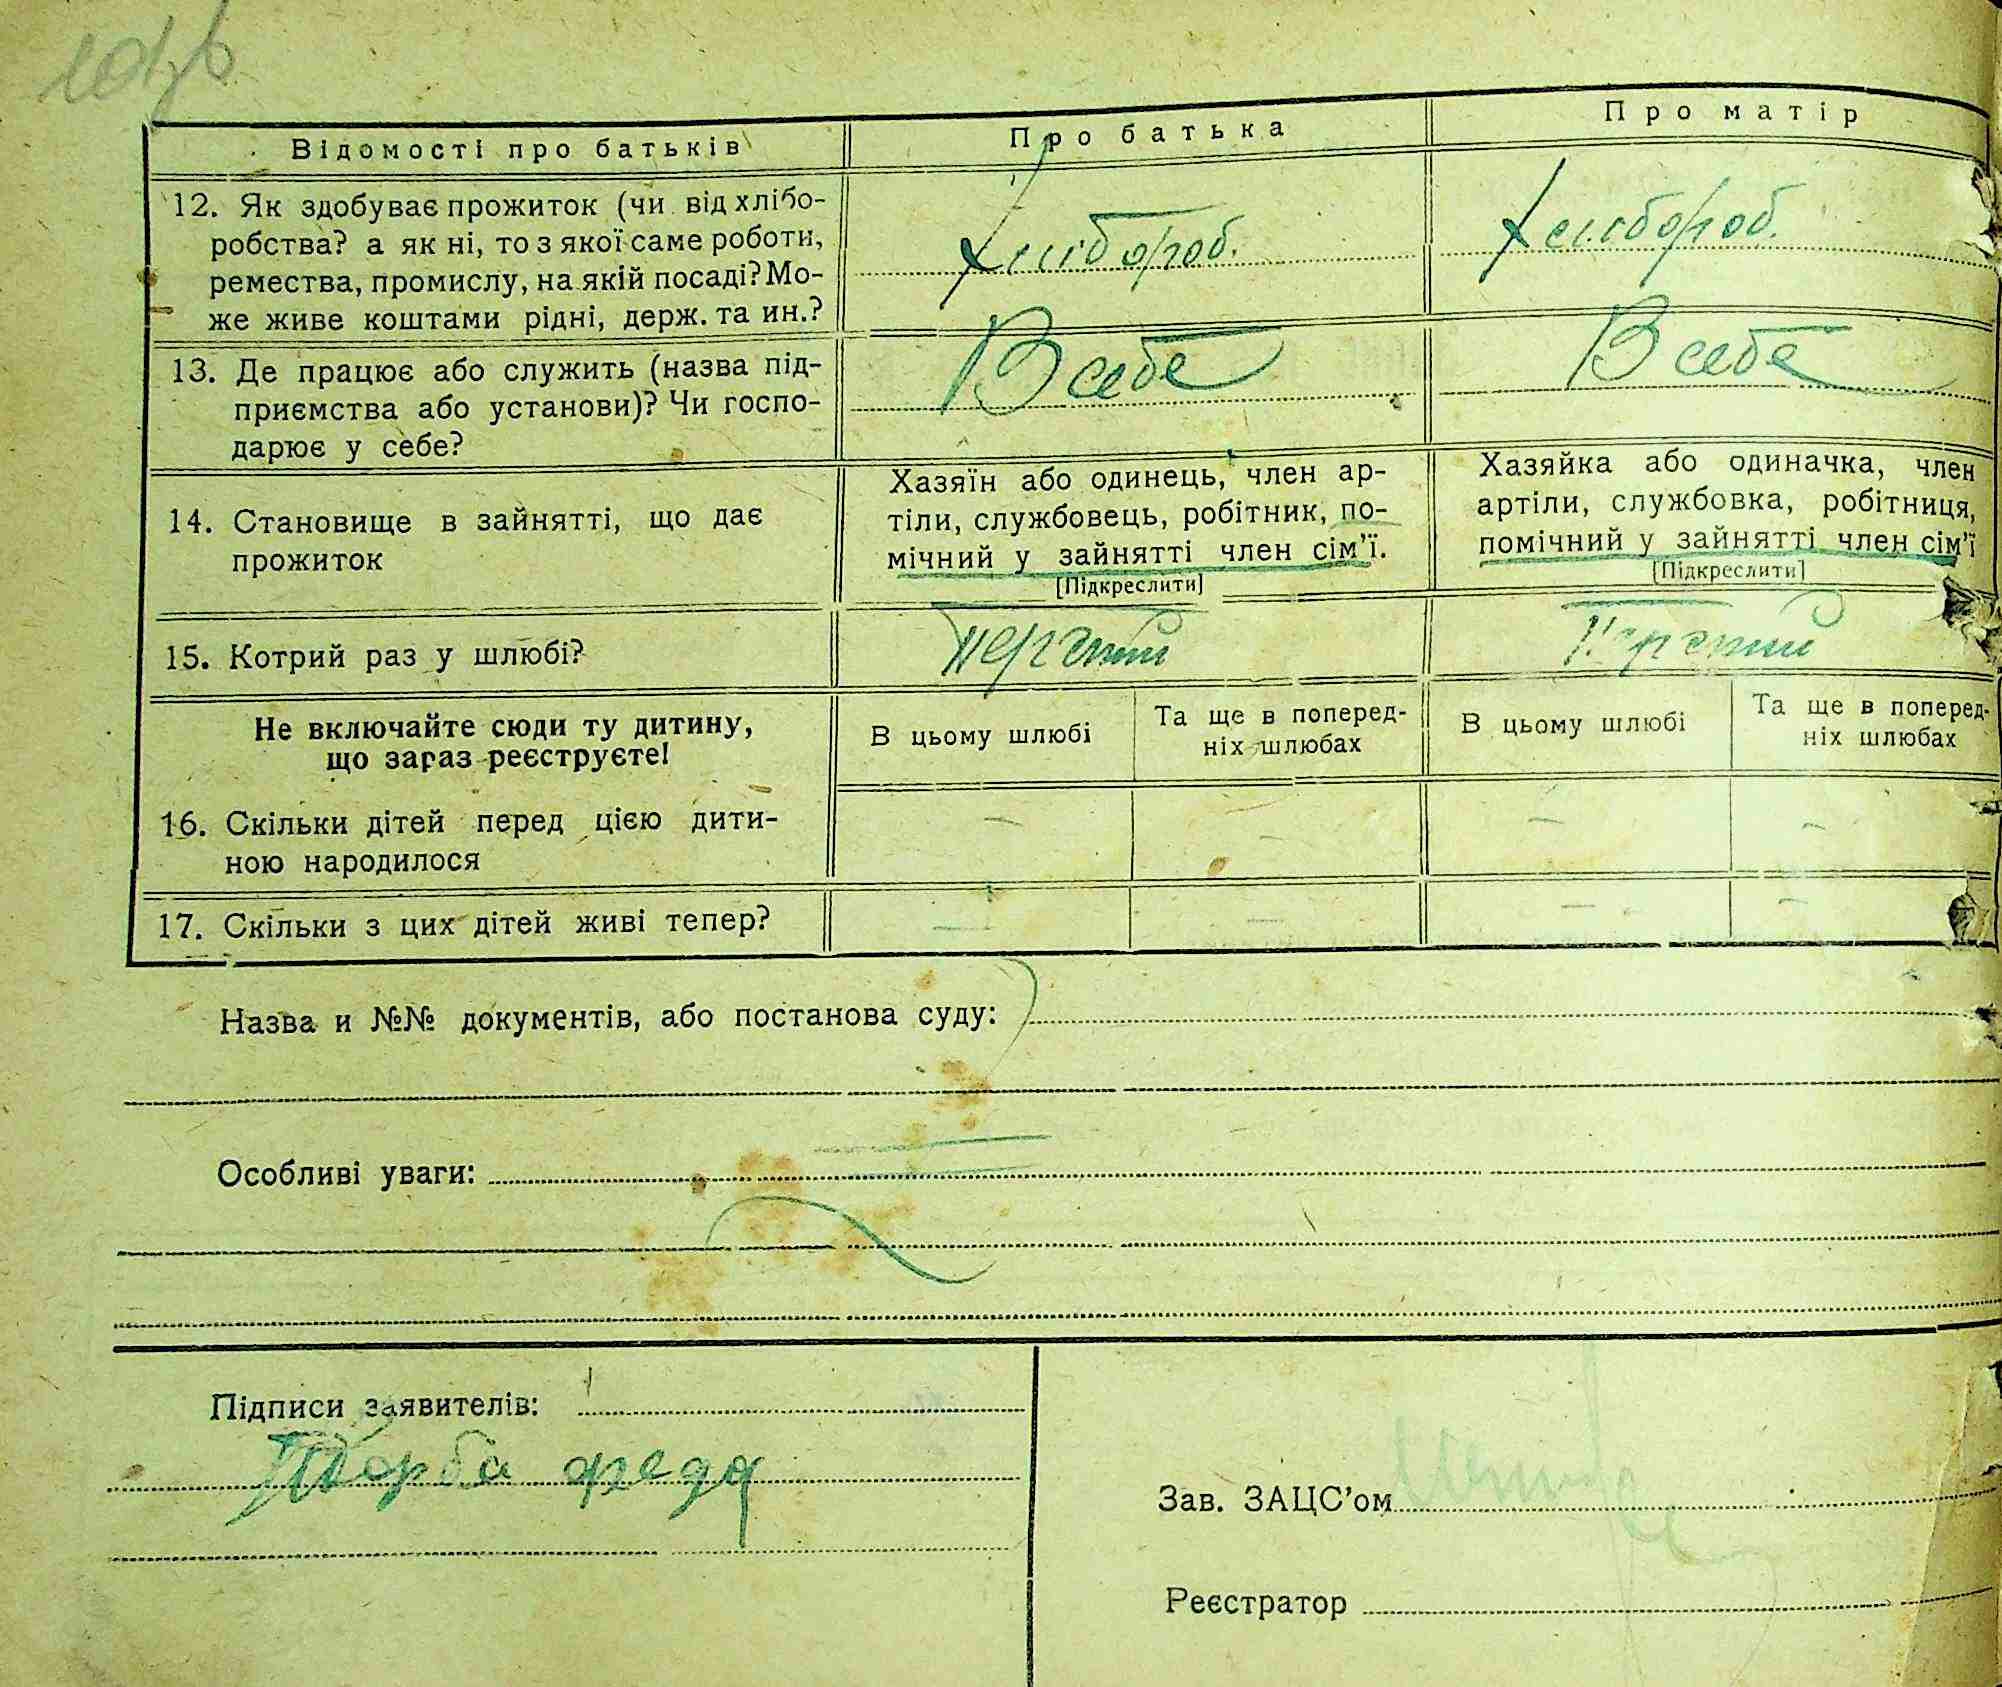 Відомості про батьків
Про батька
Про матір
12. Як здобуває прожиток (чи від хлібо-
робства? а як ні, то з якої саме роботи,
ремества, промислу, на якій посаді? Мо-
же живе коштами рідні, держ. та ин.?
Хлібороб.
Хлібороб.
13. Де працює або служить (назва під-
приємства або установи)? Чи госпо-
дарює у себе?
В себе
В себе
14. Становище в зайнятті, що дає
прожиток
Хазяїн або одинець, член ар-
тіли, службовець, робітник, по-
мічний у зайнятті член сім'ї.
[Підкреслити]
Хазяйка або одиначка, член
артіли, службовка, робітниця,
помічний у зайнятті член сім'ї
[Підкреслити]
15. Котрий раз у шлюбі?
Перший
Перший
Не включайте сюди ту дитину,
що зараз реєструєте!
В цьому шлюбі
Та ще в поперед-
ніх шлюбах
В цьому шлюбі
Та ще в поперед-
ніх шлюбах
16. Скільки дітей перед цією дити-
ною народилося
– – – –
17. Скільки з цих дітей живі тепер?
– – – –
Назва и №№ документів, або постанова суду:
Особливі уваги:
Підписи заявителів:
Торба
Зав. ЗАЦС'ом
Реєстратор